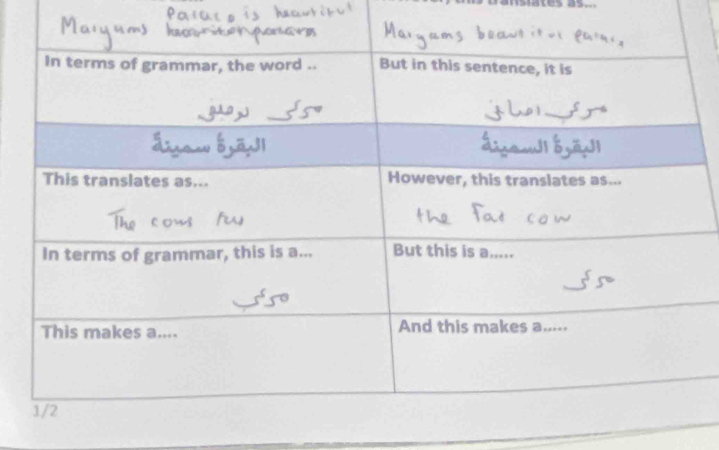 this translates as...
Palace is beautiful
Maryums
Maryams beautiful
In terms of grammar, the word ..
But in this sentence, it is
مركب
مركب
البقرةُ سمينةٌ
البقرةُ السمينةُ
This translates as...
However, this translates as...
The cow
the fat cow
In terms of grammar, this is a...
But this is a.....
مركب
مركب
This makes a....
And this makes a.....
1/2